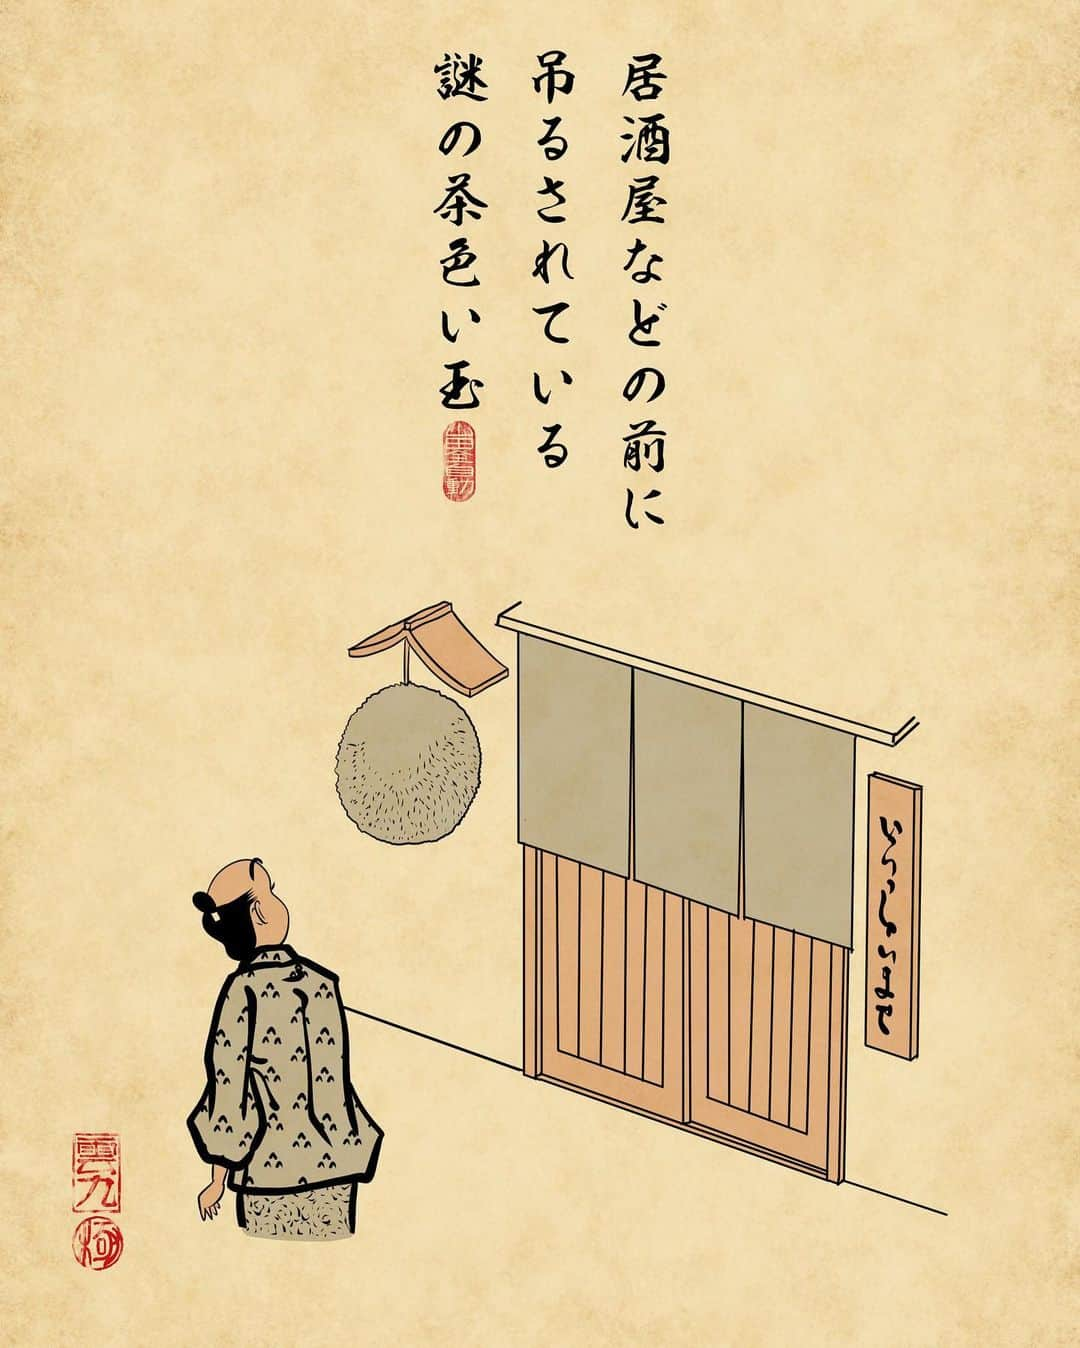 居酒屋などの前に
吊るされている
謎の茶色い玉
いらっしゃいませ